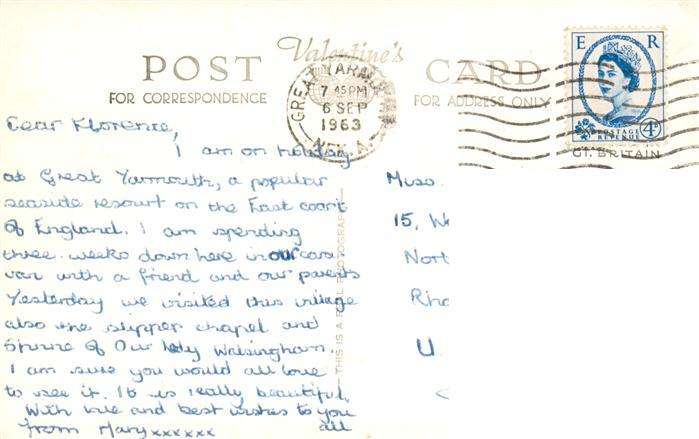 Valentine's
POST CARD
FOR CORRESPONDENCE
FOR ADDRESS ONLY
GREAT YARMOUTH
7 45PM
6 SEP
1963
E R
POSTAGE
REVENUE
4D
GT. BRITAIN
Dear Florence,
I am on holiday
at Great Yarmouth, a popular
seaside resourt on the East coast
of England. I am spending
three weeks down here in our cara
van with a friend and our parents
Yesterday we visited this village
also the slipper chapel and
Shrine of Our Lady Walsingham.
I am sure you would all love
to see it. It is really beautiful,
With love and best wishes to you
all
from Mary xxxxxx
THIS IS A REAL PHOTOGRAPH
Miss
15, W
Nort
Rho
U